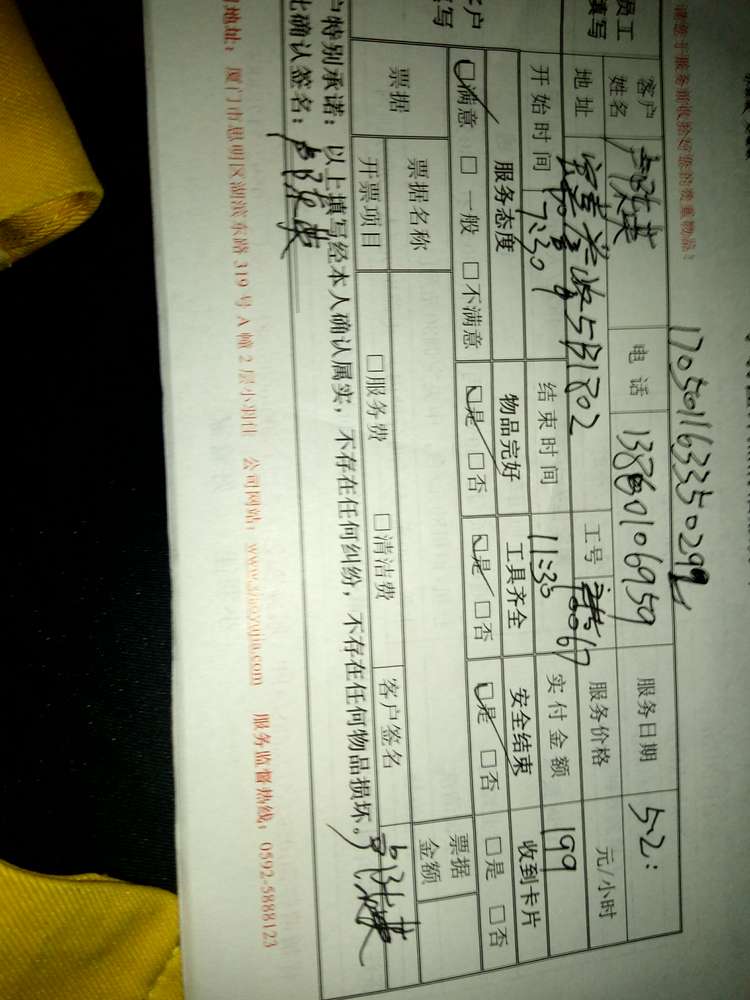 请您于服务前收拾起您的贵重物品！
17050116335029
员工
填写
客户
姓名
电话
13860106959
服务日期
5.2:
地址
5B1802
工号
10067
服务价格
元/小时
开始时间
7:30
结束时间
11:30
实付金额
199
客户
填写
服务态度
物品完好
工具齐全
安全结束
收到卡片
☑满意 □一般 □不满意
☑是 □否
☑是 □否
☑是 □否
□是 □否
票据
票据名称
票据
金额
开票项目
□服务费
□清洁费
客户签名
户特别承诺：以上填写经本人确认属实，不存在任何纠纷，不存在任何物品损坏。
此确认签名：
地址：厦门市思明区湖滨东路 319 号 A 幢 2 层小羽佳 公司网站：www.xiaoyujia.com 服务监督热线：0592-5888123